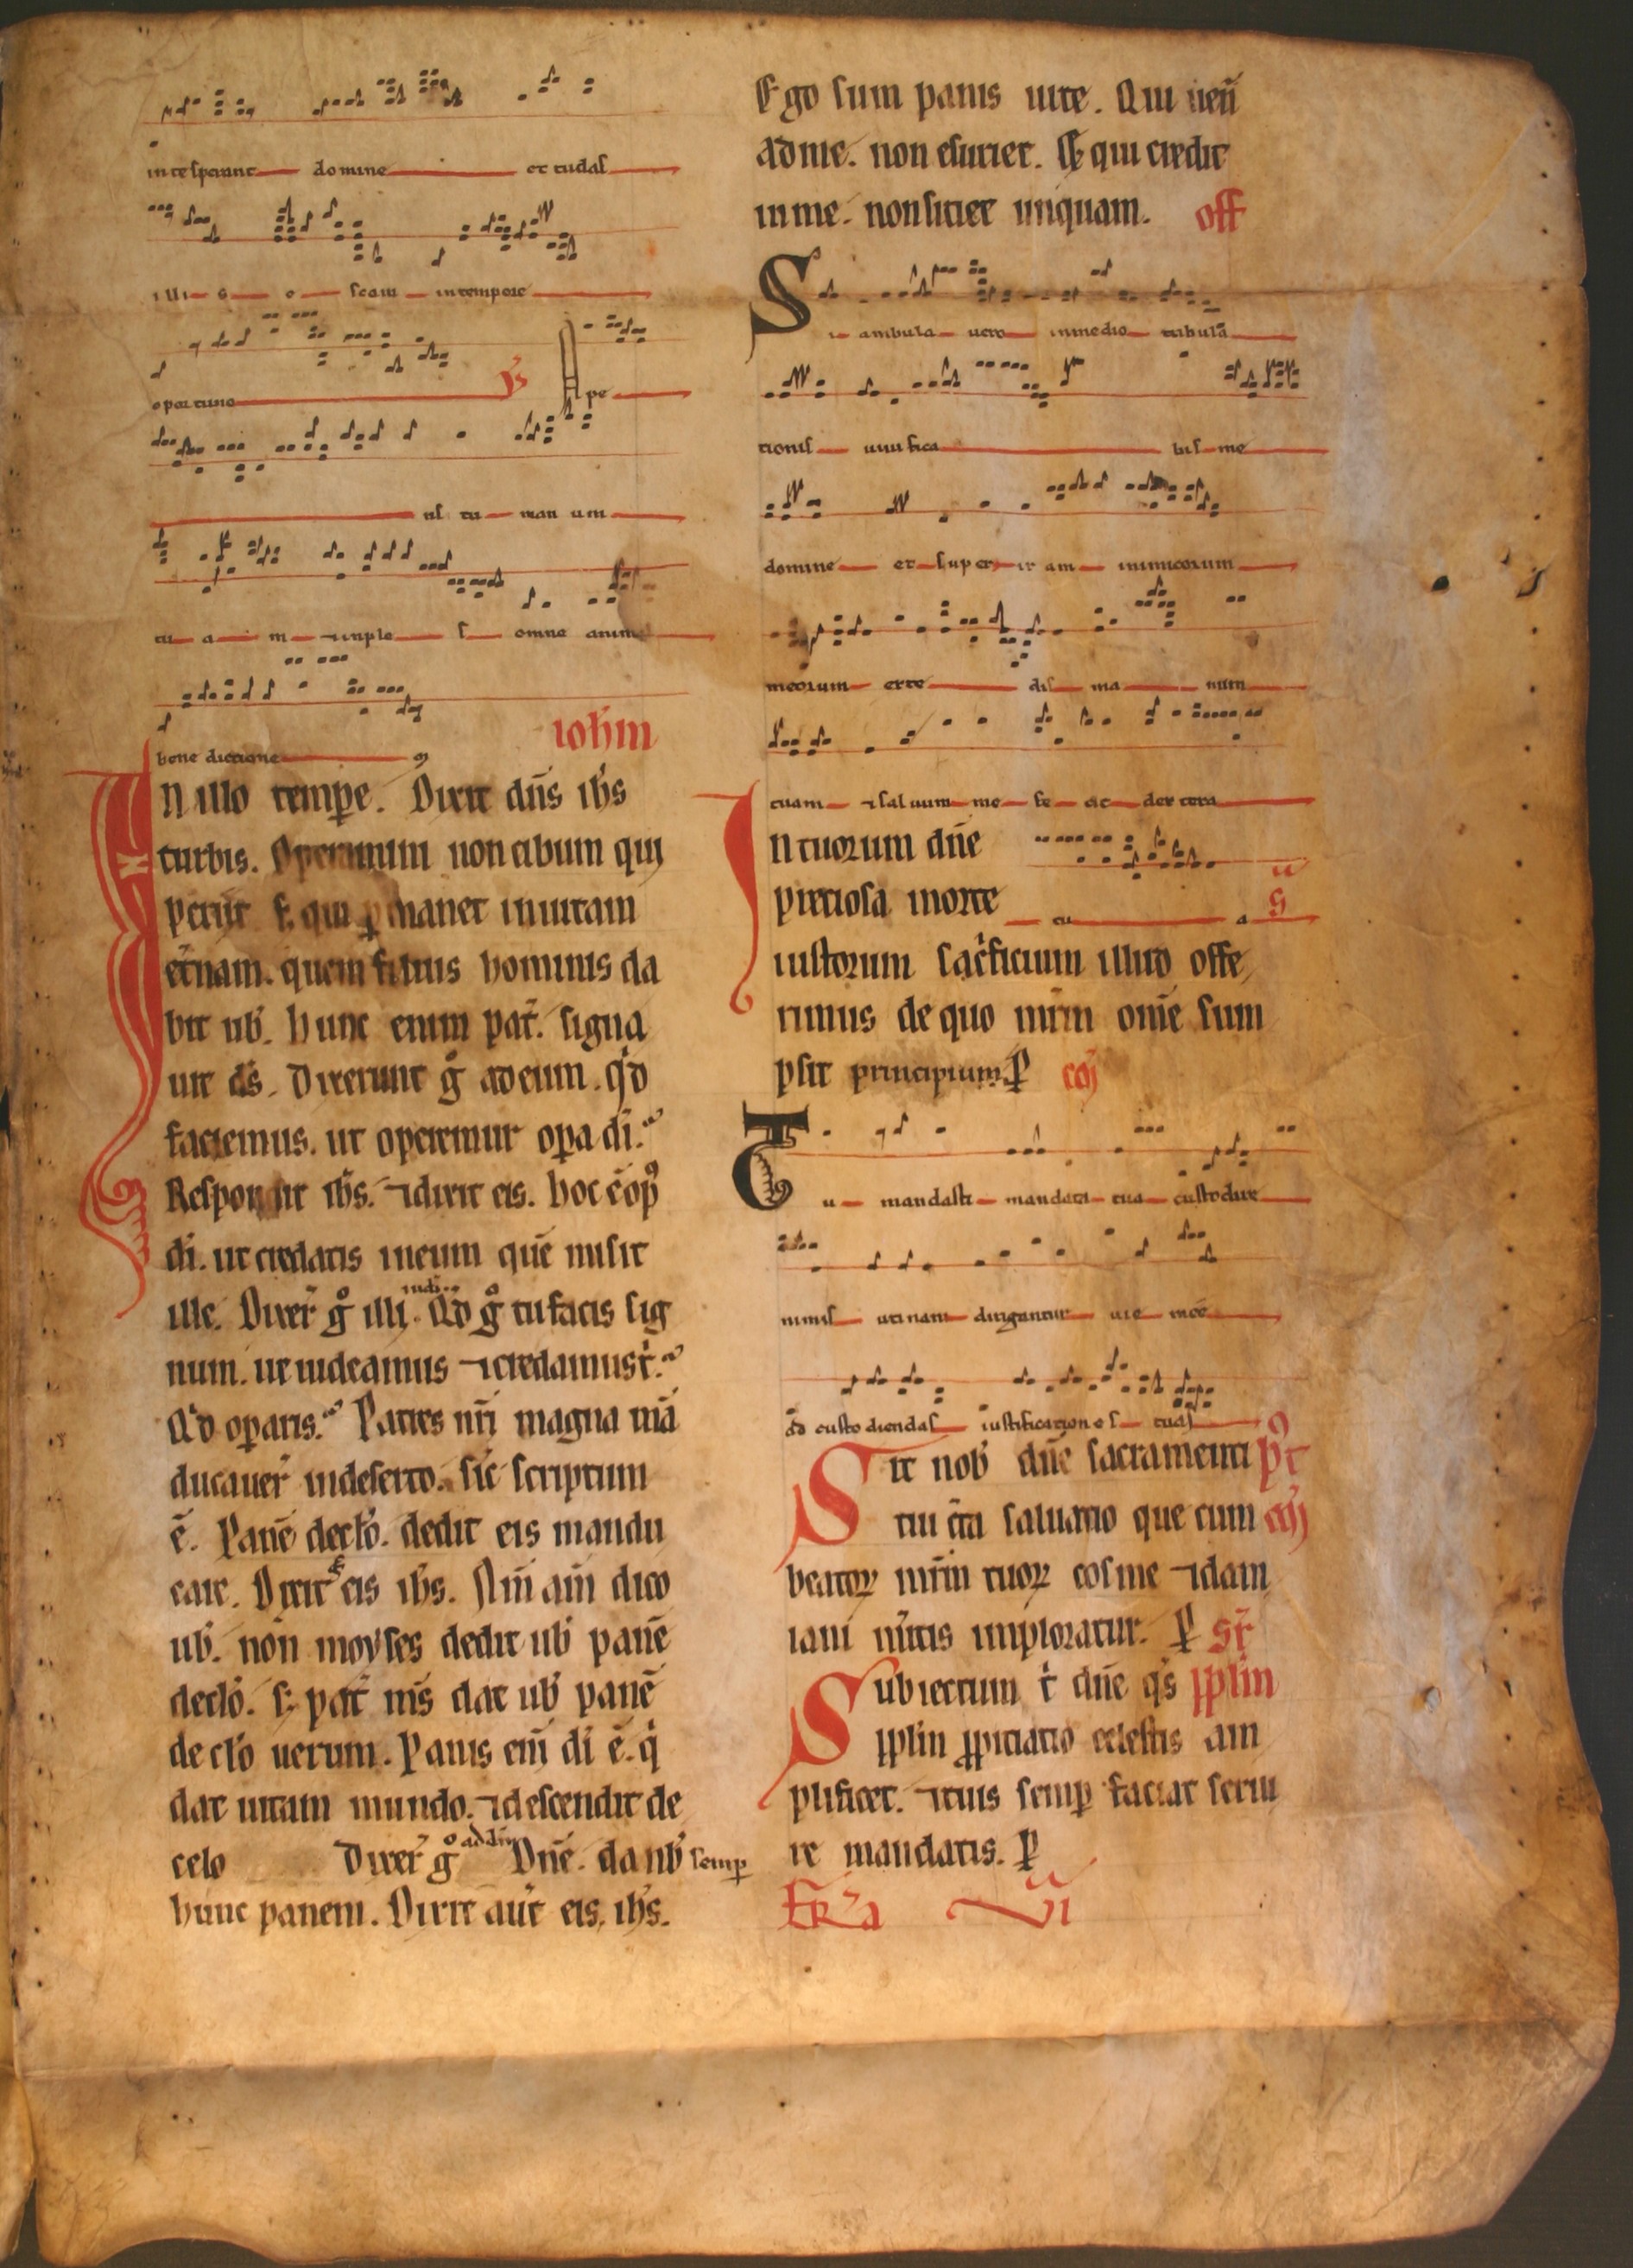 in te sperant domine et tu das
illi s e scam in tempore
oportuno ℣ A pe
ris tu man um
tu a m ⁊ imple s omne anima
bene dictione
ioh̄m
IN illo temp̄e. Dixit dn̄s ih̄s
turbis. Operamini non cibum qui
perit s; qui ꝑmanet in uitam
et̄nam. quem filius hominis da
bit uob̄. hunc enim pat̄. signa
uit ds̄. Dixerunt g̊ ad eum. qͥd
faciemus. ut operemur op̄a dī.
Respondit ih̄s. ⁊ dixit eis. hoc ē opꝰ
dī. ut credatis in eum quē misit
ille. Dixer̄ g̊ illi iudi. Qͥd g̊ tu facis sig
num. ut uideamus ⁊ credamus t̄.
Qͥd op̄aris. Patres nr̄i magna mā
ducauer̄ in deserto. sic̄ scriptum
ē. Panē de clō. dedit eis mandu
care. Dixit g̊ eis ih̄s. Am̄ am̄ dico
uob̄. non moyses dedit uob̄ panē
de clō. s; pat̄ ms̄ dat uob̄ panē
de clō uerum. Panis em̄ dī ē. qͥ
dat uitam mundo. ⁊ descendit de
celo Dixer̄ g̊ ad dn̄m Dn̄e. da nob̄ semꝑ
hunc panem. Dixit aūt eis, ih̄s.
Ego sum panis uite. Qui uen̄
ad me. non esuriet. Et qui credit
in me. non sitiet unquam. off
Si ambula uero in medio tribulā
tionis uiuifica bis me
domine et super ir am inimicorum
meorum exte dis ma num
tuam ⁊ saluum me fe cit dextera
tu a S
In tuorum dn̄e
preciosa morte
iustorum sac̄ficium illud offe
rimus de quo mr̄m om̄e sum
psit principium. ꝑ cōꝫ
Tu mandasti mandata tua custodire
nimis utinam dirigantur uie mee
ad custodiendas iustificationes tuas
Sit nob̄ dn̄e sacramenti pꝰt
tui c̄ta saluatio que cum cōꝫ
beatoꝝ mr̄m tuoꝝ cosme ⁊ dam
iani m̄itis imploratur. ꝑ sr̄
Subiectum t̄ dn̄e qs̄ pp̄lm
pp̄lm ꝓpitiatio celestis am
plificet. ⁊ tuis semꝑ faciat serui
re mandatis. ꝑ